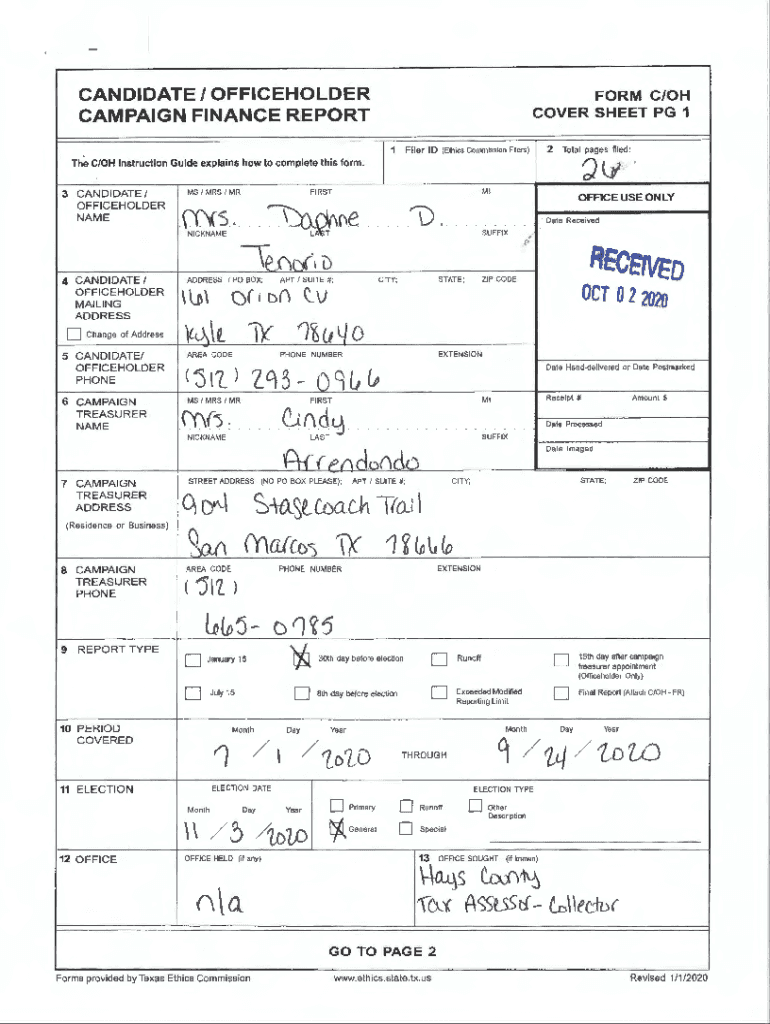 CANDIDATE / OFFICEHOLDER
CAMPAIGN FINANCE REPORT
FORM C/OH
COVER SHEET PG 1
The C/OH Instruction Guide explains how to complete this form.
1 Filer ID (Ethics Commission Filers)
2 Total pages filed:
26
3 CANDIDATE / OFFICEHOLDER NAME
MS / MRS / MR FIRST MI
Mrs. Daphne D.
NICKNAME LAST SUFFIX
Tenorio
OFFICE USE ONLY
Date Received
RECEIVED
OCT 02 2020
4 CANDIDATE / OFFICEHOLDER MAILING ADDRESS
Change of Address
ADDRESS / PO BOX; APT / SUITE #; CITY; STATE; ZIP CODE
161 Orion CV
Kyle TX 78640
5 CANDIDATE/ OFFICEHOLDER PHONE
AREA CODE PHONE NUMBER EXTENSION
(512) 293-0966
Date Hand-delivered or Date Postmarked
6 CAMPAIGN TREASURER NAME
MS / MRS / MR FIRST MI
Mrs. Cindy
NICKNAME LAST SUFFIX
Arrendondo
Receipt # Amount $
Date Processed
Date Imaged
7 CAMPAIGN TREASURER ADDRESS
(Residence or Business)
STREET ADDRESS (NO PO BOX PLEASE); APT / SUITE #; CITY; STATE; ZIP CODE
904 Stagecoach Trail
San Marcos TX 78666
8 CAMPAIGN TREASURER PHONE
AREA CODE PHONE NUMBER EXTENSION
(512)
665-0785
9 REPORT TYPE
January 15
30th day before election
Runoff
15th day after campaign treasurer appointment (Officeholder Only)
July 15
8th day before election
Exceeded Modified Reporting Limit
Final Report (Attach C/OH - FR)
10 PERIOD COVERED
Month Day Year
7 / 1 / 2020
THROUGH
Month Day Year
9 / 24 / 2020
11 ELECTION
ELECTION DATE
Month Day Year
11 / 3 / 2020
ELECTION TYPE
Primary
Runoff
Other Description
General
Special
12 OFFICE
OFFICE HELD (if any)
n/a
13 OFFICE SOUGHT (if known)
Hays County
Tax Assessor-Collector
GO TO PAGE 2
Forms provided by Texas Ethics Commission
www.ethics.state.tx.us
Revised 1/1/2020